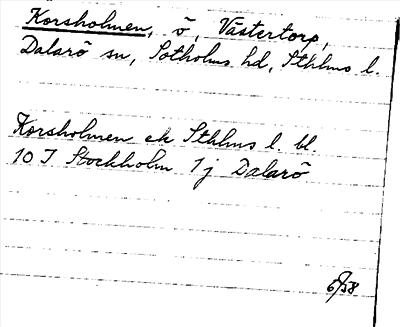 Korsholmen, ö, Västertorp,
Dalarö sn, Sotholms hd, Sthlms l.
Korsholmen ek Sthlms l. bl.
10 I Stockholm 1j Dalarö
6/58